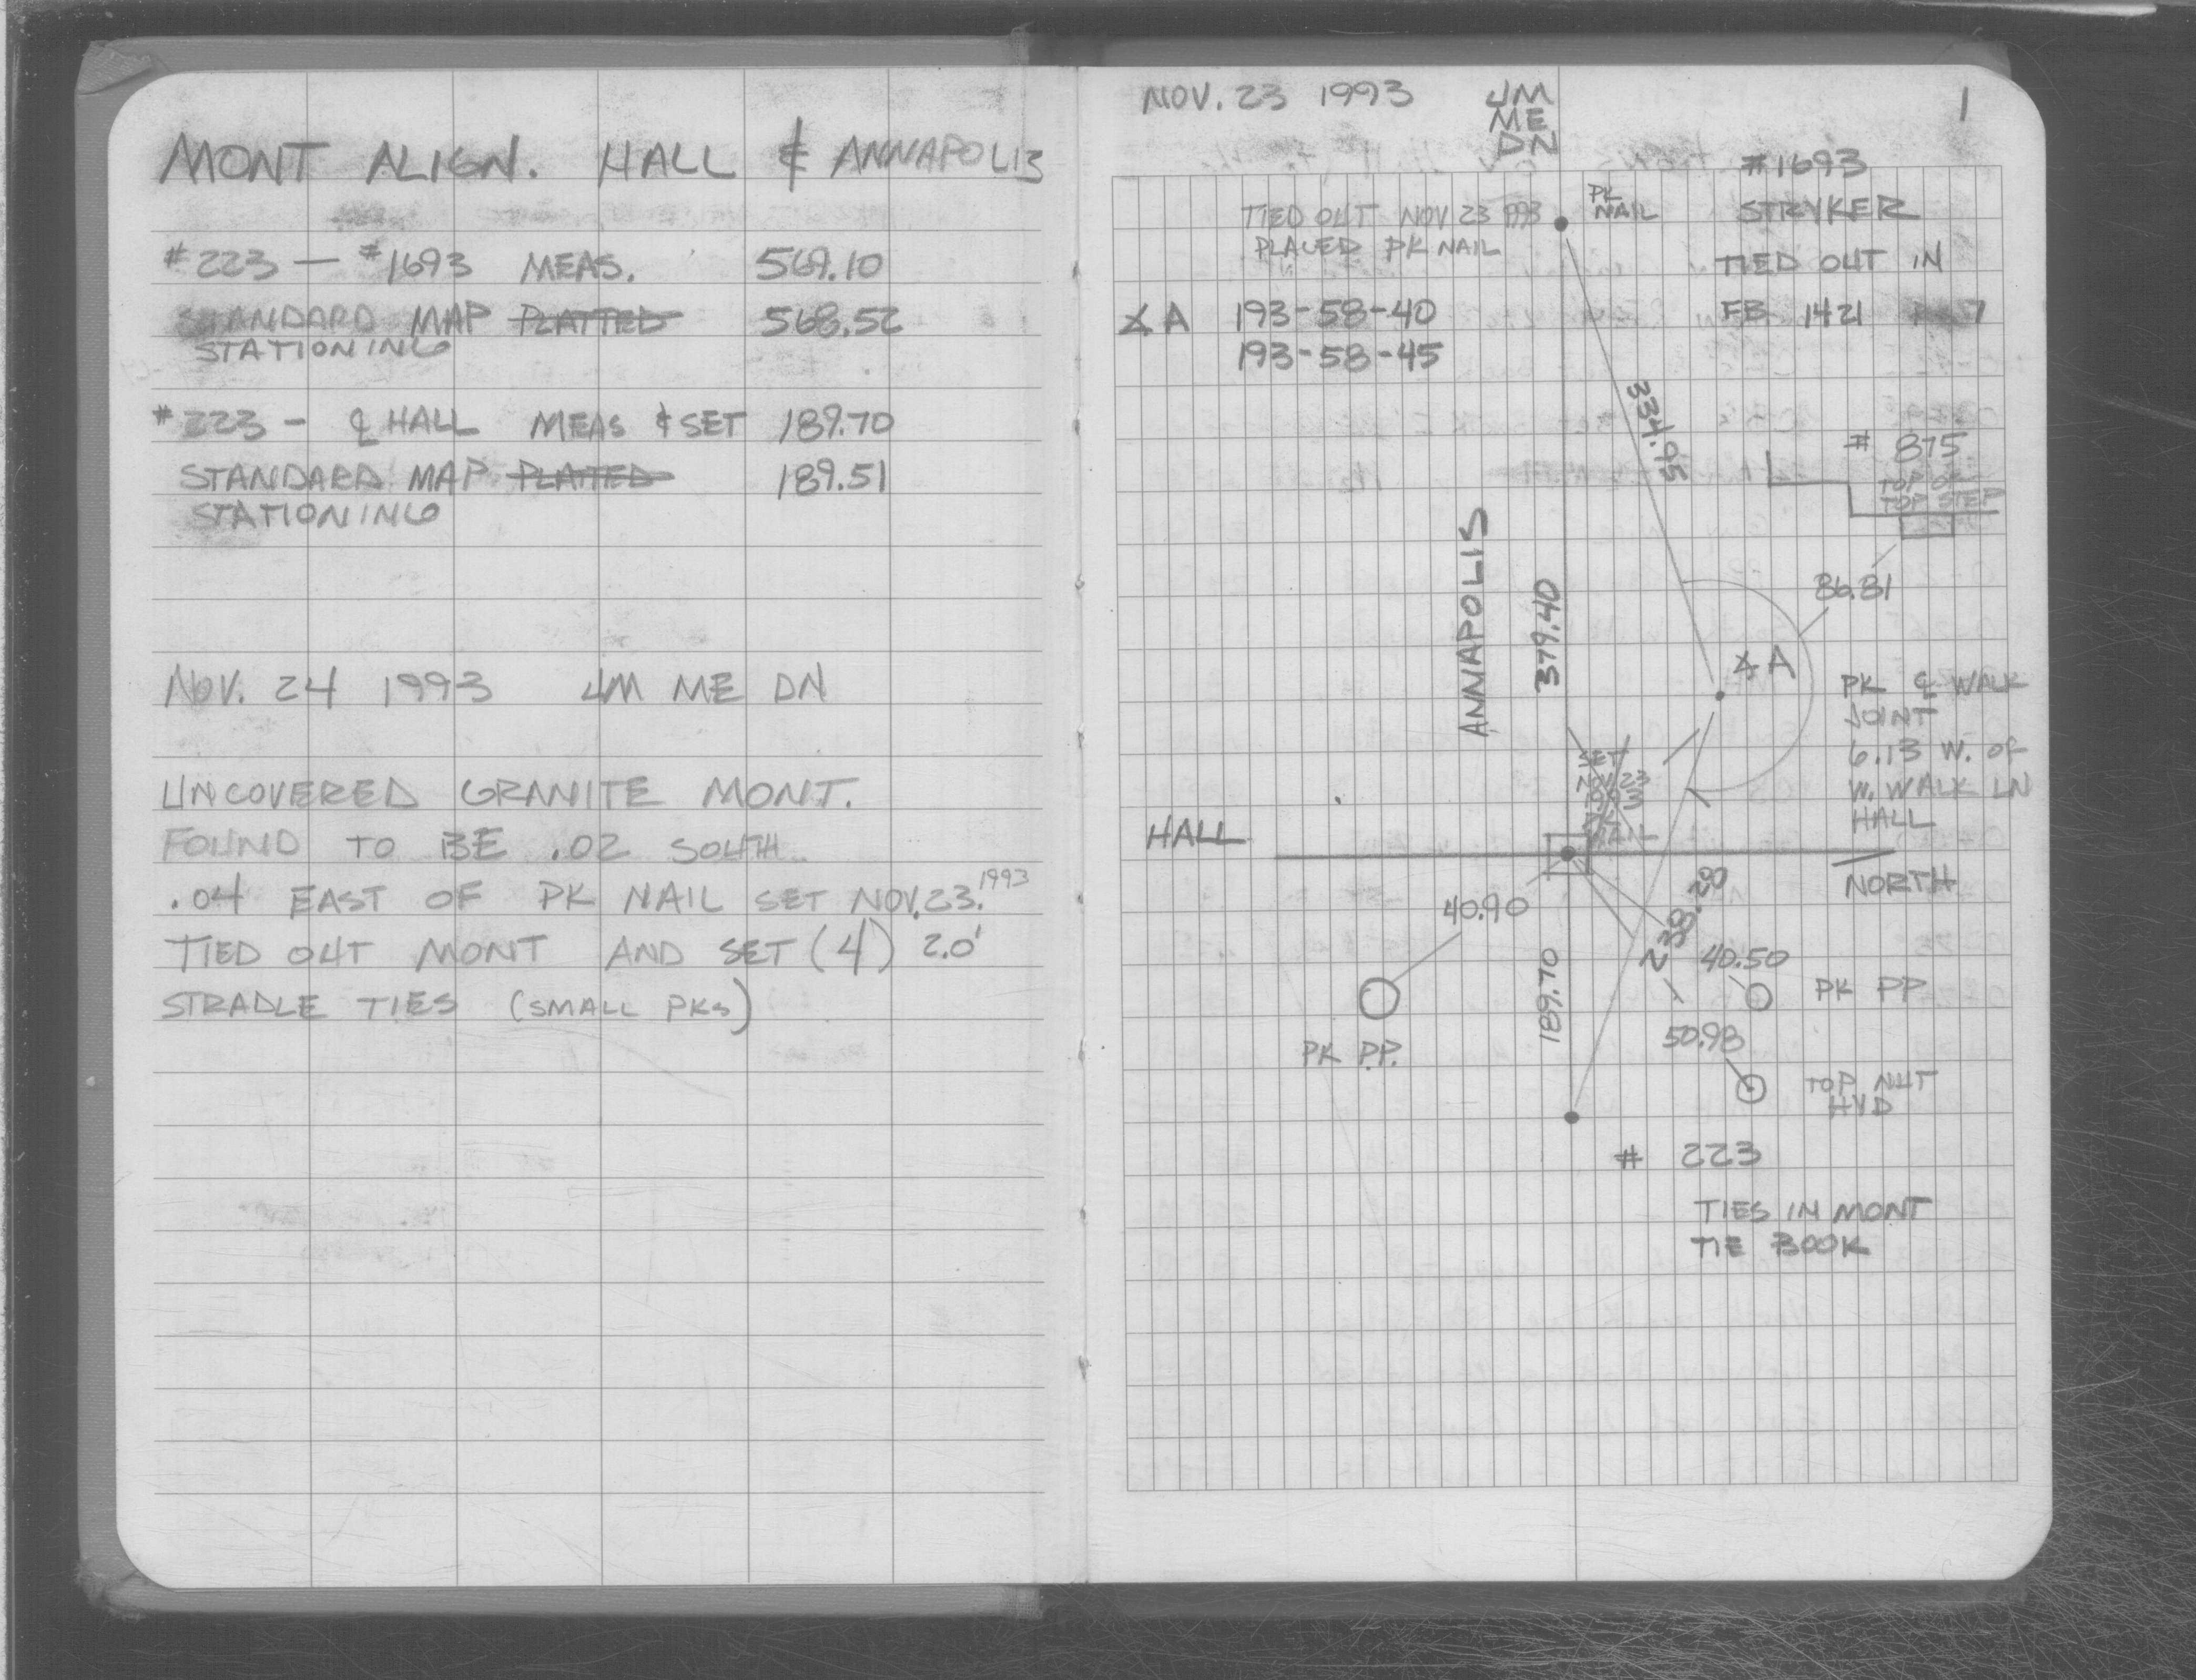 MONT ALIGN. HALL & ANNAPOLIS
#223 — #1693 MEAS. 569.10
STANDARD MAP PLATTED 568.52
STATIONING
#223 - ℄ HALL MEAS & SET 189.70
STANDARD MAP PLATTED 189.51
STATIONING
NOV. 24 1993 JM ME DN
UNCOVERED GRANITE MONT.
FOUND TO BE .02 SOUTH
.04 EAST OF PK NAIL SET NOV.23. 1993
TIED OUT MONT AND SET (4) 2.0'
STRADLE TIES (SMALL PKs)
NOV. 23 1993
JM
ME
DN
1
#1693
STRYKER
TIED OUT IN
FB 1421 7
PK
NAIL
TIED OUT NOV 23 1993
PLACED PK NAIL
∡A 193-58-40
193-58-45
334.95
# 875
TOP OF
TOP STEP
86.81
ANNAPOLIS
379.40
∡A
PK ℄ WALK
JOINT
6.13 W. OF
W. WALK LN
HALL
SET
NOV 23
1993
PK
NAIL
HALL
NORTH
40.90
238.28
189.70
40.50
PK PP
PK P.P.
50.98
TOP NUT
HYD
# 223
TIES IN MONT
TIE BOOK